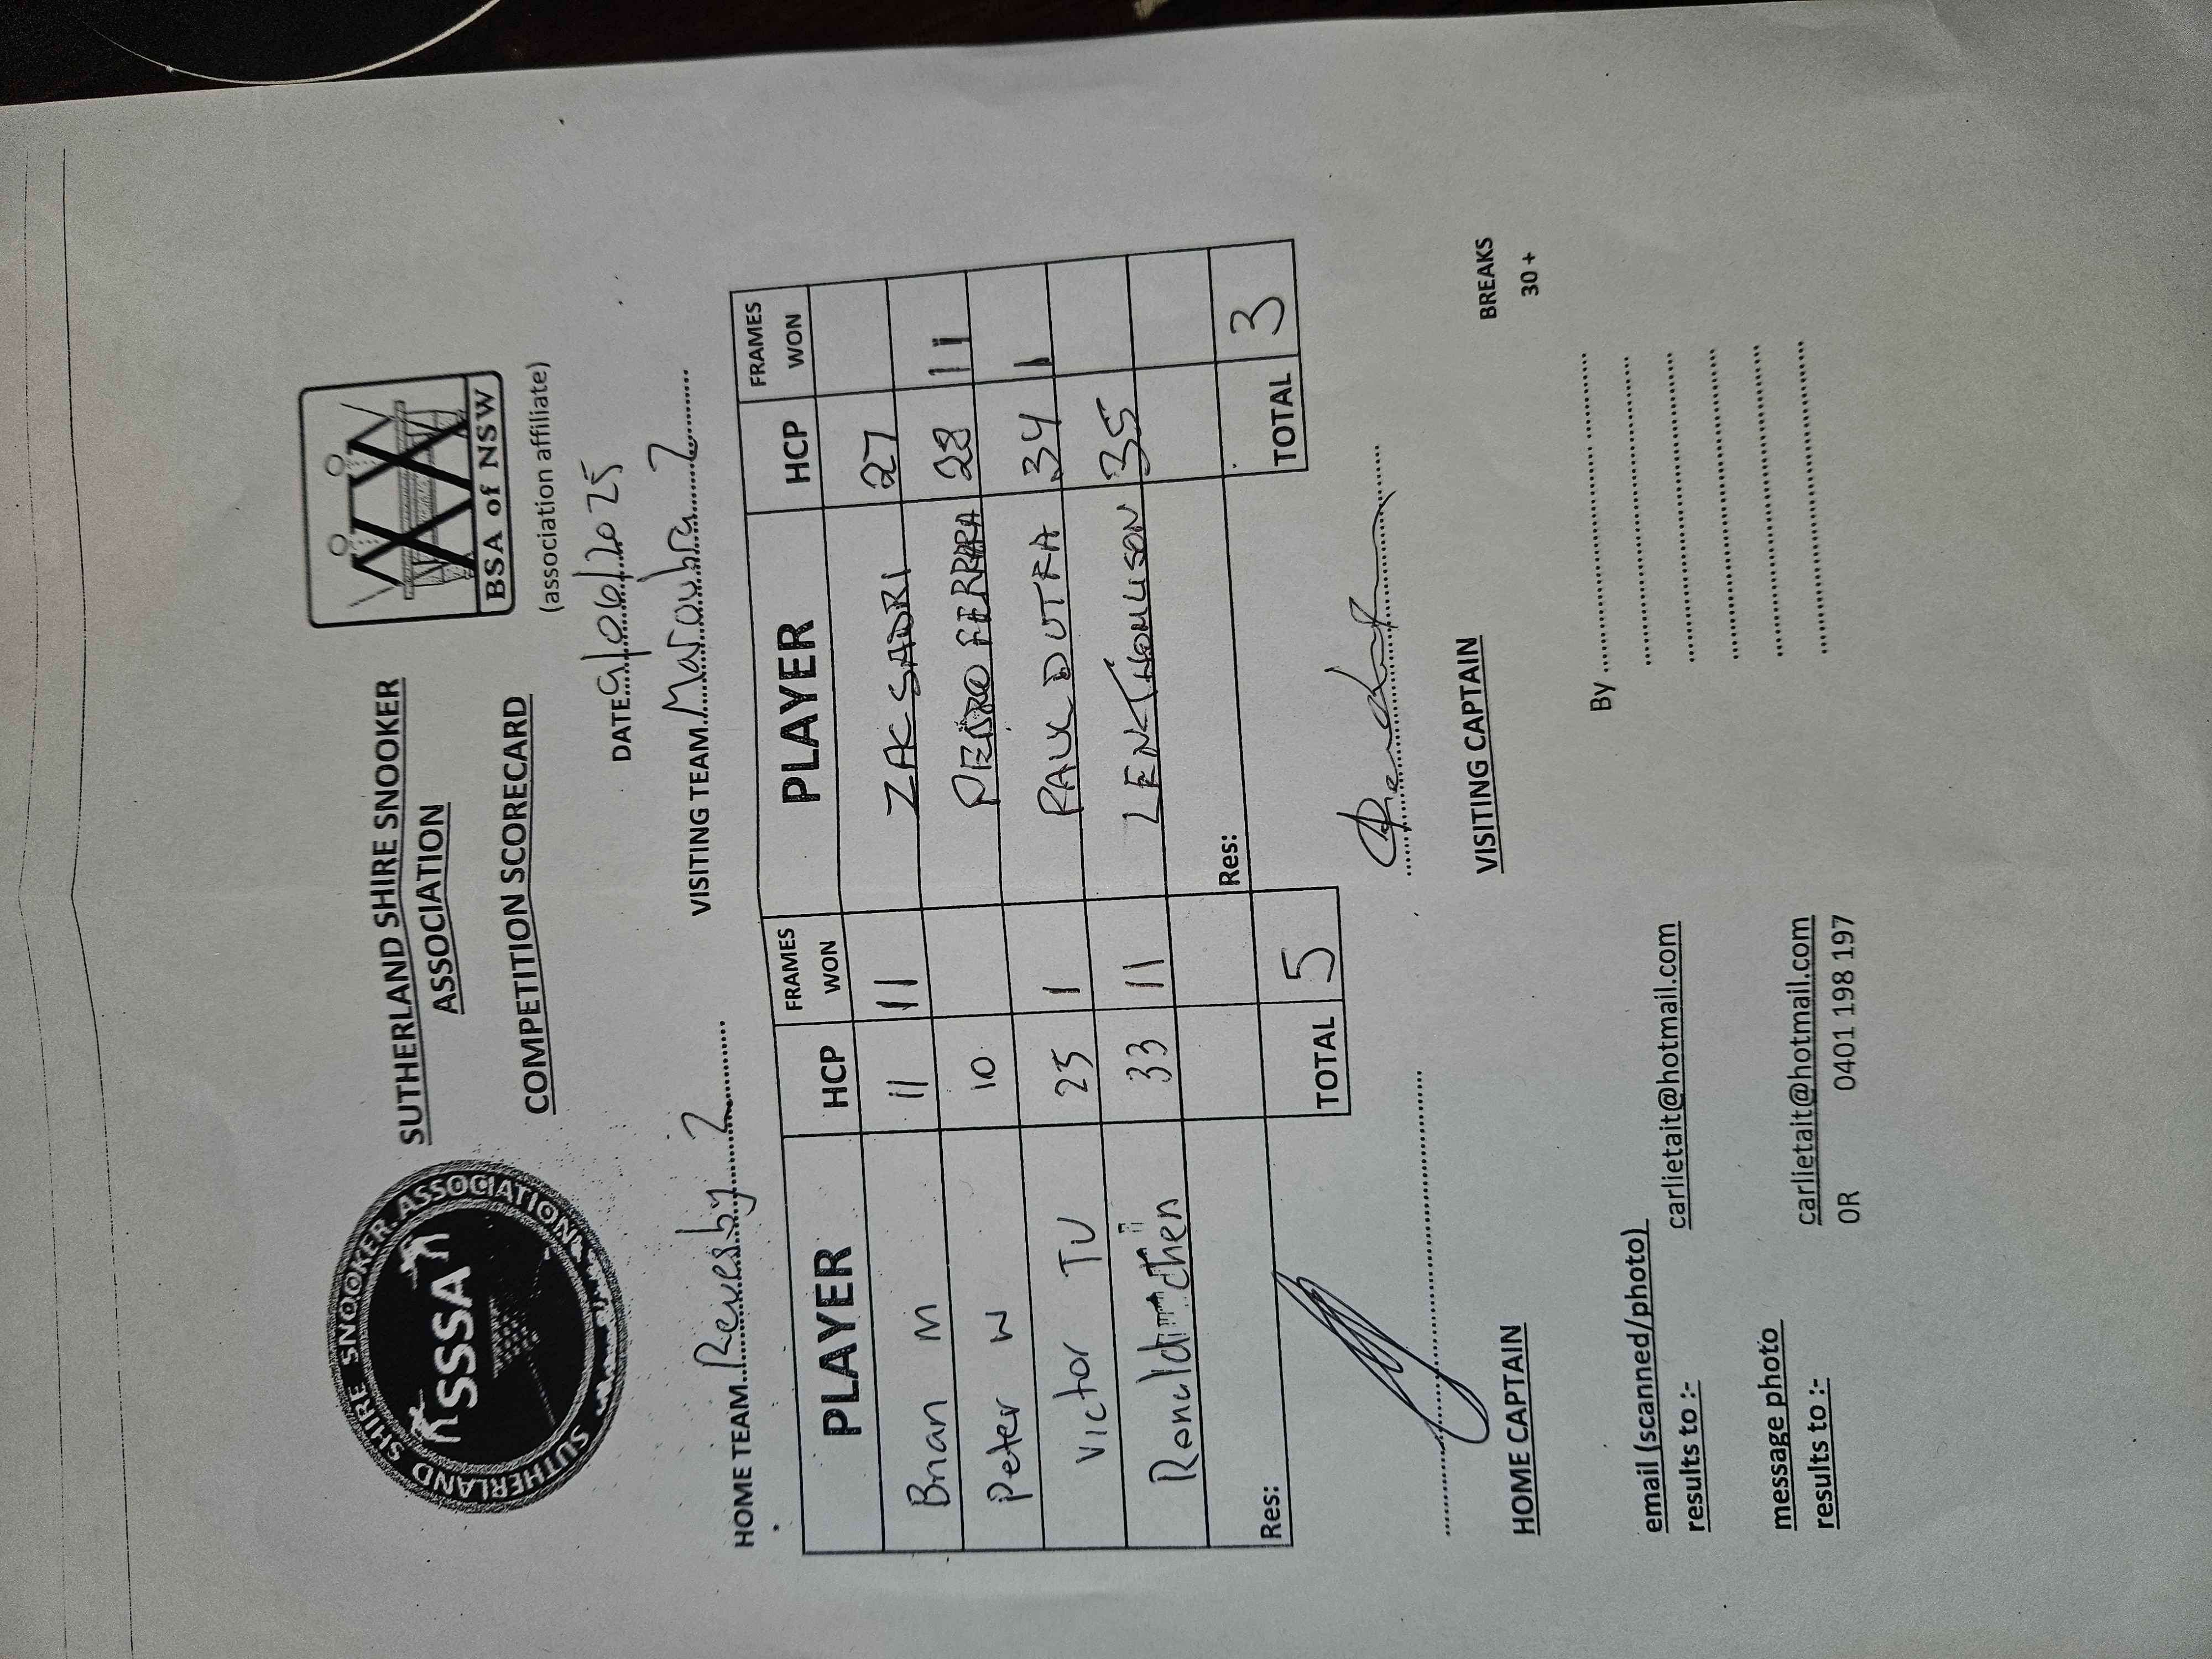 SUTHERLAND SHIRE SNOOKER ASSOCIATION
SSSA
SUTHERLAND SHIRE SNOOKER
ASSOCIATION
COMPETITION SCORECARD
BSA of NSW
(association affiliate)
DATE 9/06/2025
HOME TEAM Revesby 2 VISITING TEAM Maroubra 2
PLAYER HCP FRAMES WON PLAYER HCP FRAMES WON
Brian M 11 11 ZAC SADRI 27
Peter W 10 PEDRO FERRARA 28 11
Victor TU 25 1 PAUL DUTRA 34 1
Ronald chen 33 11 LEN THOMLISON 35
Res: Res:
TOTAL 5 TOTAL 3
HOME CAPTAIN VISITING CAPTAIN
BREAKS
30 +
email (scanned/photo)
results to :- carlietait@hotmail.com
By
message photo
results to :- carlietait@hotmail.com
OR 0401 198 197